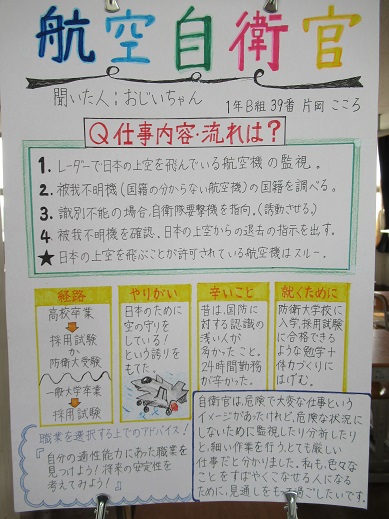 航空自衛官
聞いた人：おじいちゃん
1年B組 39番 片岡 こころ
Q仕事内容・流れは？
1. レーダーで日本の上空を飛んでいる航空機の監視。
2. 被我不明機(国籍の分からない航空機)の国籍を調べる。
3. 識別不能の場合、自衛隊要撃機を指向。(誘動させる。)
4. 被我不明機を確認。日本の上空からの退去の指示を出す。
★ 日本の上空を飛ぶことが許可されている航空機はスルー。
経路
高校卒業
採用試験
か
防衛大受験
一般大学卒業
採用試験
やりがい
日本のために
空の守りを
している！
という誇りを
もてた。
辛いこと
昔は、国防に
対する認識の
浅い人が
多かったこと。
24時間勤務
が辛かった。
就くために
防衛大学校に
入学、採用試験
に合格できる
ような勉学＋
体力づくりに
はげむ。
職業を選択する上でのアドバイス！
『自分の適性能力にあった職業を
見つけよう！将来の安定性を
考えてみよう！』
自衛官は、危険で大変な仕事という
イメージがあったけれど、危険な状況に
しないために監視したり分析したり
と、細い作業を行うとても厳しい
仕事だと分かりました。私も、色々な
ことをすばやくこなせる人になる
ために、見通しをもって過ごしたいです。